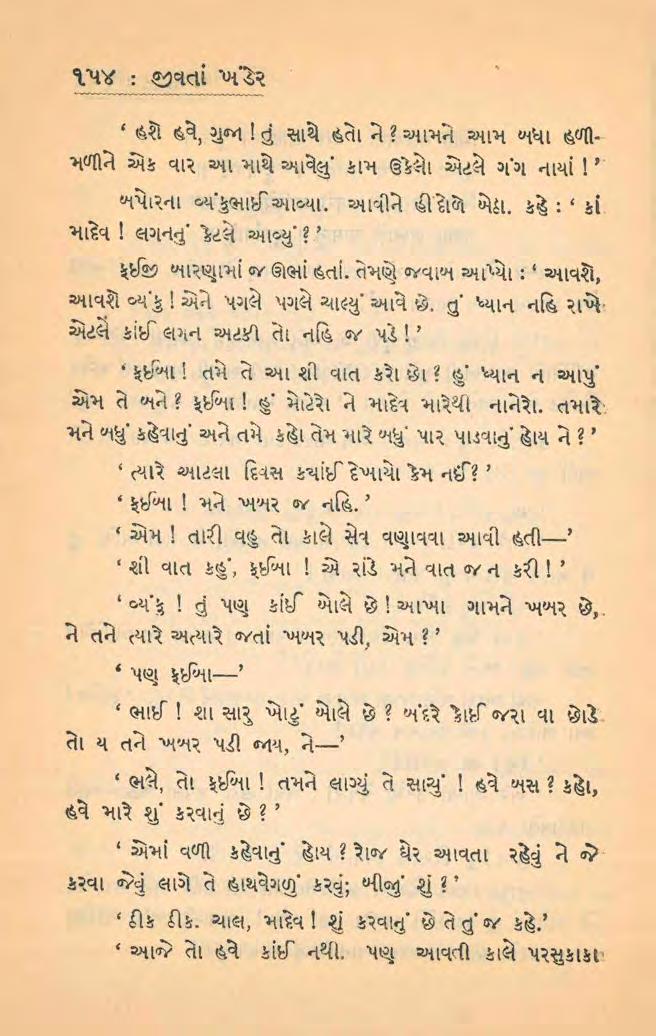 ૧૫૪ : જીવતાં ખંડેર
‘ હશે હવે, ગુજા ! તું સાથે હતો ને ? આમને આમ બધા હળી-
મળીને એક વાર આ માથે આવેલું કામ ઉકેલો એટલે ગંગ નાયાં ! ’
બપોરના વ્યંકુભાઈ આવ્યા. આવીને હીંદોળે બેઠા. કહે : ‘ કાં
માદેવ ! લગનનું કેટલે આવ્યું ? ’
ફઈજી બારણામાં જ ઊભાં હતાં. તેમણે જવાબ આપ્યો : ‘ આવશે,
આવશે વ્યંકુ ! એને પગલે પગલે ચાલ્યું આવે છે. તું ધ્યાન નહિ રાખે
એટલે કાંઈ લગન અટકી તો નહિ જ પડે ! ’
‘ ફઈબા ! તમે તે આ શી વાત કરો છો ? હું ધ્યાન ન આપું
એમ તે બને ? ફઈબા ! હું મોટેરો ને માદેવ મારેથી નાનેરો. તમારે
મને બધું કહેવાનું અને તમે કહો તેમ મારે બધું પાર પાડવાનું હોય ને ? ’
‘ ત્યારે આટલા દિવસ ક્યાંઈ દેખાયો કેમ નઈં ? ’
‘ ફઈબા ! મને ખબર જ નહિ. ’
‘ એમ ! તારી વહુ તો કાલે સેવ વણાવવા આવી હતી—’
‘ શી વાત કહું, ફઈબા ! એ રાંડે મને વાત જ ન કરી ! ’
‘ વ્યંકુ ! તું પણ કાંઈ બોલે છે ! આખા ગામને ખબર છે,
ને તને ત્યારે અત્યારે જતાં ખબર પડી, એમ ? ’
‘ પણ ફઈબા—’
‘ ભાઈ ! શા સારુ ખોટું બોલે છે ? બંદરે કોઈ જરા વા છોડે
તો ય તને ખબર પડી જાય, ને—’
‘ ભલે, તો ફઈબા ! તમને લાગ્યું તે સાચું ! હવે બસ ? કહો,
હવે મારે શું કરવાનું છે ? ’
‘ એમાં વળી કહેવાનું હોય ? રોજ ઘેર આવતા રહેવું ને જે
કરવા જેવું લાગે તે હાથવેગળું કરવું; બીજું શું ? ’
‘ ઠીક ઠીક. ચાલ, માદેવ ! શું કરવાનું છે તે તું જ કહે.’
‘ આજે તો હવે કાંઈ નથી. પણ આવતી કાલે પરસુકાકા